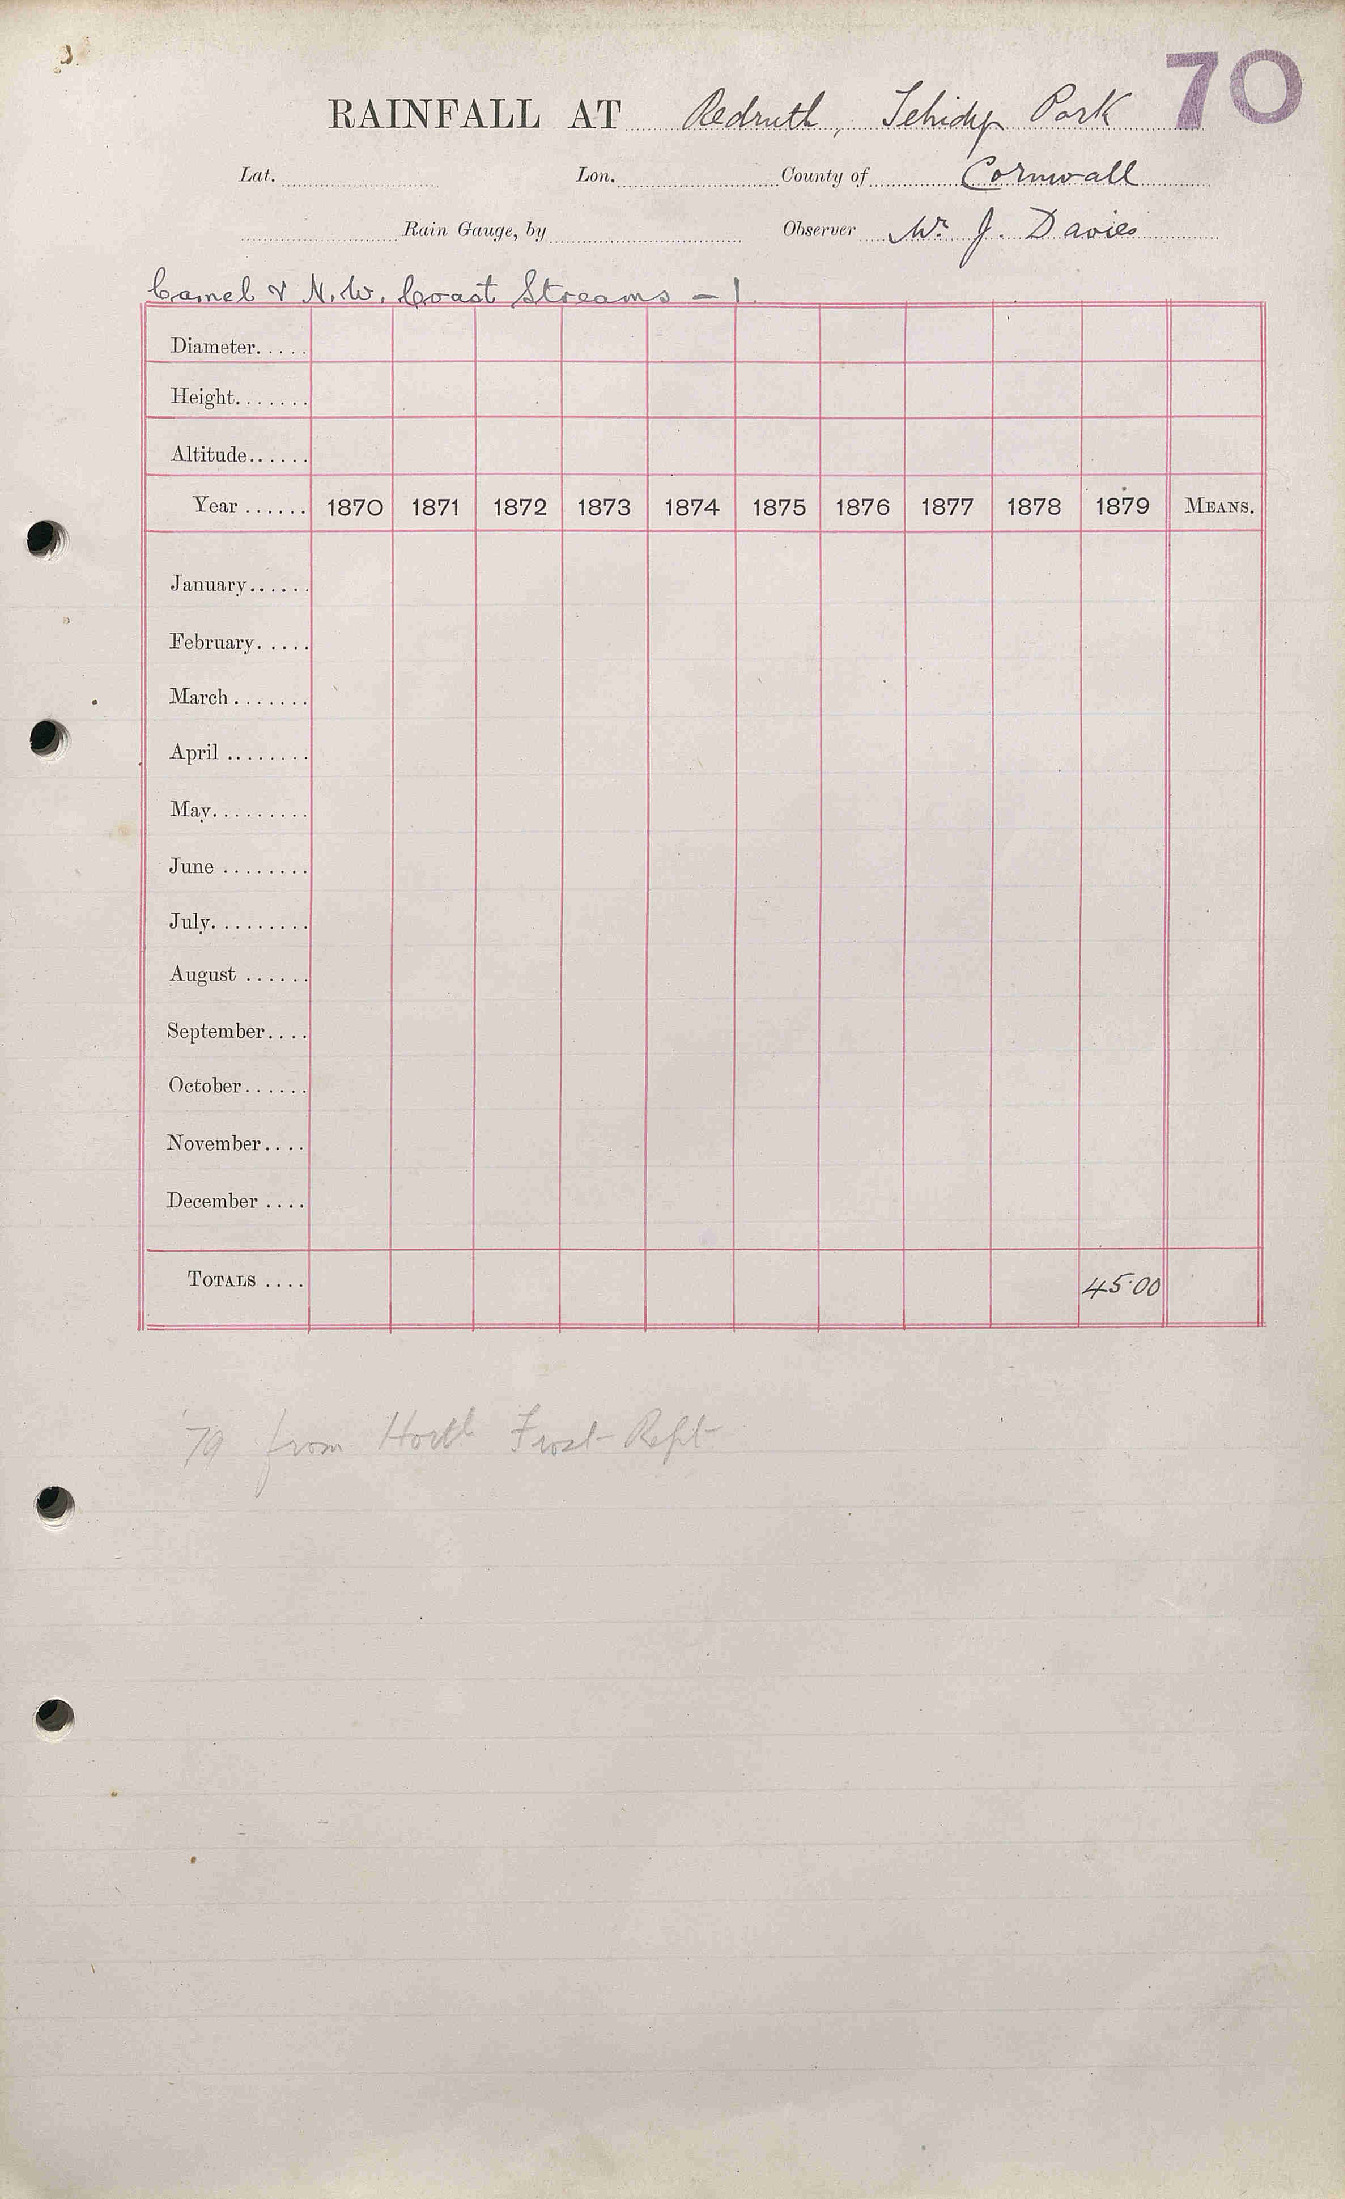 70
RAINFALL AT Redruth, Tehidy Park
Lat. Lon. County of Cornwall
Rain Gauge, by Observer Mr J. Davies
Camel & N.W. Coast Streams - 1
Diameter.....
Height.......
Altitude......
Year ...... 1870 1871 1872 1873 1874 1875 1876 1877 1878 1879 MEANS.
January......
February.....
March .......
April ........
May.........
June ........
July.........
August ......
September....
October......
November....
December ....
TOTALS .... 45.00
'79 from Hortl Frost Rept